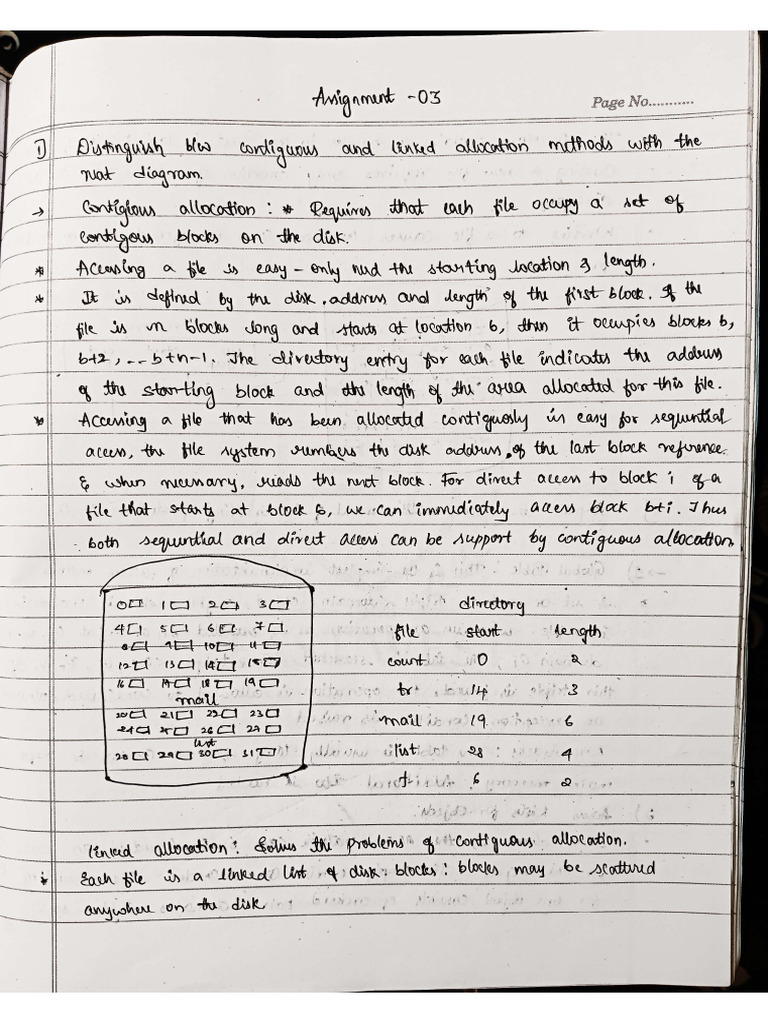 Assignment -03
Page No...........
1) Distinguish b/w contiguous and linked allocation methods with the
neat diagram.
→ Contigious allocation : * Requires that each file occupy a set of
contigous blocks on the disk.
* Accessing a file is easy - only need the starting location & length.
* It is defined by the disk. address and length of the first block. If the
file is n blocks long and starts at location b, then it occupies blocks b,
b+2, -- b+n-1. The directory entry for each file indicates the address
of the starting block and the length of the area allocated for this file.
* Accessing a file that has been allocated contiguosly is easy for sequential
access, the file system rembers the disk address, of the last block reference
& when necessary, reads the next block. For direct access to block i of a
file that starts at block b, we can immediately access block b+i. Thus
both sequential and direct access can be support by contiguous allocation.
0 1 2 3
directory
4 5 6 7
file start length
8 9 10 11
12 13 14 15
count 0 2
16 17 18 19
tr 14 3
mail
20 21 22 23
mail 19 6
24 25 26 27
list
28 29 30 31
list 28 4
f 6 2
linked allocation : Solves the problems of contiguous allocation.
Each file is a linked list of disk blocks : blocks may be scattured
anywhere on the disk